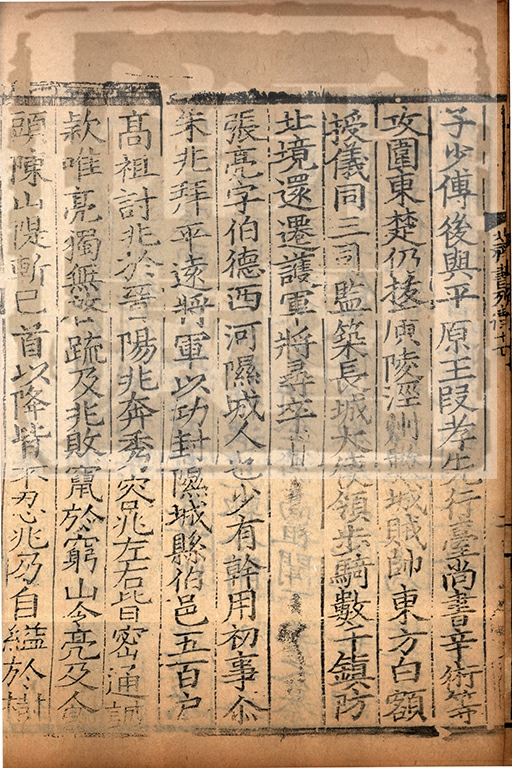 子少傅後與平原王段孝先行臺尚書辛術等
攻圍東楚仍拔廣陵涇州數城賊帥東方白額
授儀同三司監築長城大使領步騎數千鎮防
北境還遷護軍將尋卒
張亮字伯德西河隰城人也少有幹用初事尒
朱兆拜平遠將軍以功封隰城縣伯邑五百户
髙祖討兆於晉陽兆奔秀容兆左右皆密通誠
款唯亮獨無啓疏及兆敗竄於窮山令亮及倉
頭陳山隄斬己首以降皆不忍兆乃自縊於樹